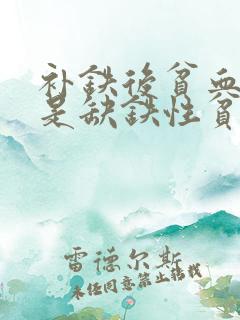 补铁后贫血
是缺铁性贫
雷德尔斯
未经同意禁止转载